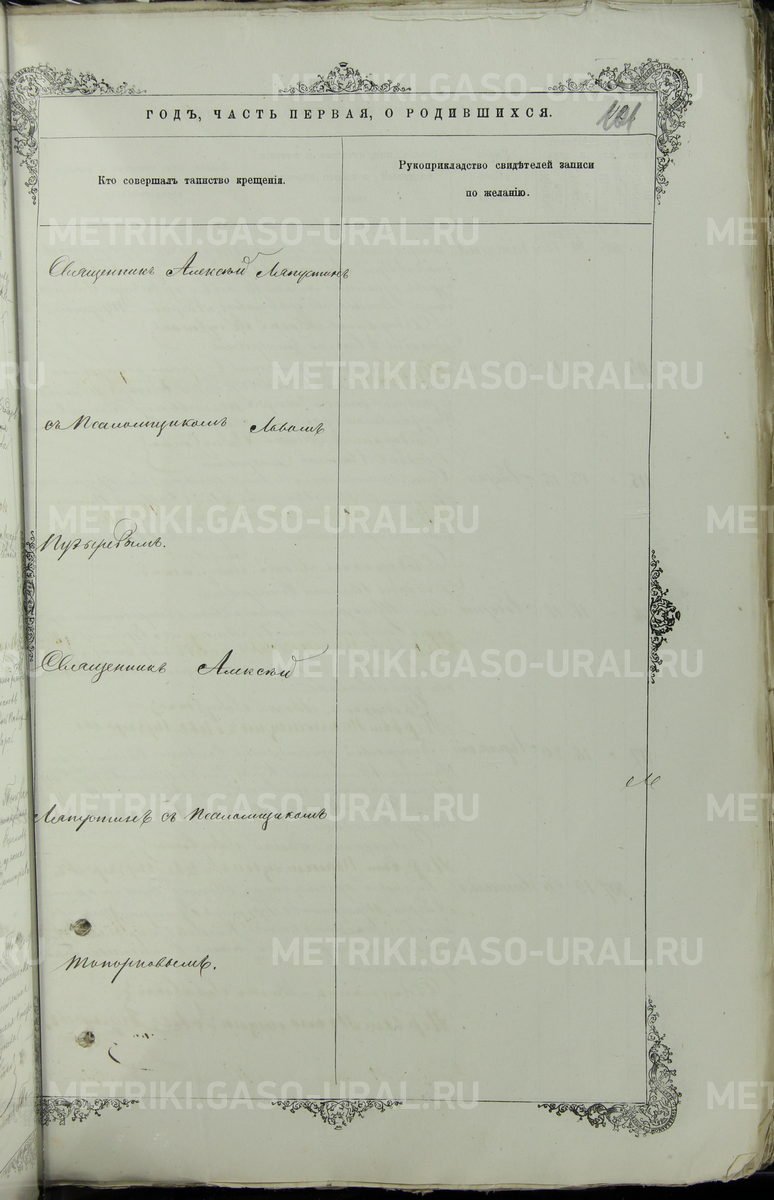 ГОДЪ, ЧАСТЬ ПЕРВАЯ, О РОДИВШИХСЯ.
Кто совершалъ таинство крещенія.
Рукоприкладство свидѣтелей записи
по желанію.
Священникъ Алексѣй Ляпустинъ
съ Псаломщикомъ Львомъ
Пузыревымъ.
Священникъ Алексѣй
Ляпустинъ съ Псаломщикомъ
Топорковымъ.
METRIKI.GASO-URAL.RU